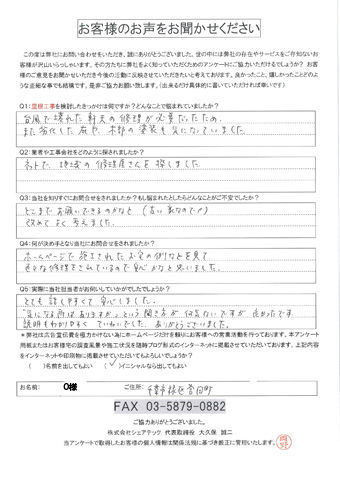 お客様のお声をお聞かせください
この度は弊社にお問い合わせをいただき、誠にありがとうございました。世の中には弊社の存在やサービスをご存知ないお
客様が沢山いらっしゃいます。その方たちに弊社をよく知っていただくためのアンケートにご協力いただけるでしょうか？お客
様のご意見をお聞かせいただき今後の活動に反映させていただきたいと考えております。良かったこと、嬉しかったことどのよ
うな些細な事でも結構です。是非ご協力お願い致します。(出来るだけ具体的に書いていただければ幸いです)
Q1:屋根工事を検討したきっかけは何ですか？どんなことで悩まれていましたか？
台風で壊れた軒天の修理が必要だったため。
また劣化した庇や、木部の塗装も気になっていました。
Q2:業者や工事会社をどのように探されましたか？
ネットで、地域の修理屋さんを探しました
Q3:当社を知りすぐにお問合せをされましたか？もし悩まれたとしたらどんなことがご不安でしたか？
どこまでお願いできるのかなと (古い家なので)
改めてよく考えました。
Q4:何が決め手となり当社にお問合せをされましたか？
ホームページで施工されたお宅の例などを見て
色々な修理をされているので安心かなと思いました。
Q5:実際に当社担当者がお伺いしていかがでしたでしょうか？
とても話しやすくて安心しました。
"気になる所はありますか"という聞き方が何気ないですが良かったです。
説明もわかりやすくていねいでした。ありがとうございました。
＊弊社は広告宣伝費を極力かけない為にホームページだけを頼りにお客様への営業活動を行っております。本アンケート
用紙またはお客様宅の調査風景や施工状況を随時ブログ形式のインターネットに掲載させていただいております。上記内容
をインターネットや印刷物に掲載させていただいてもよろしいでしょうか？
( )名前を出してもよい (✓)イニシャルなら出してもよい
お名前: O様 ご住所: 千葉市緑区誉田町
FAX 03-5879-0882
ご協力ありがとうございました。
株式会社シェアテック 代表取締役 大久保 誠二
当アンケートで取得したお客様の個人情報は関係法規に基づき厳正に管理いたします。